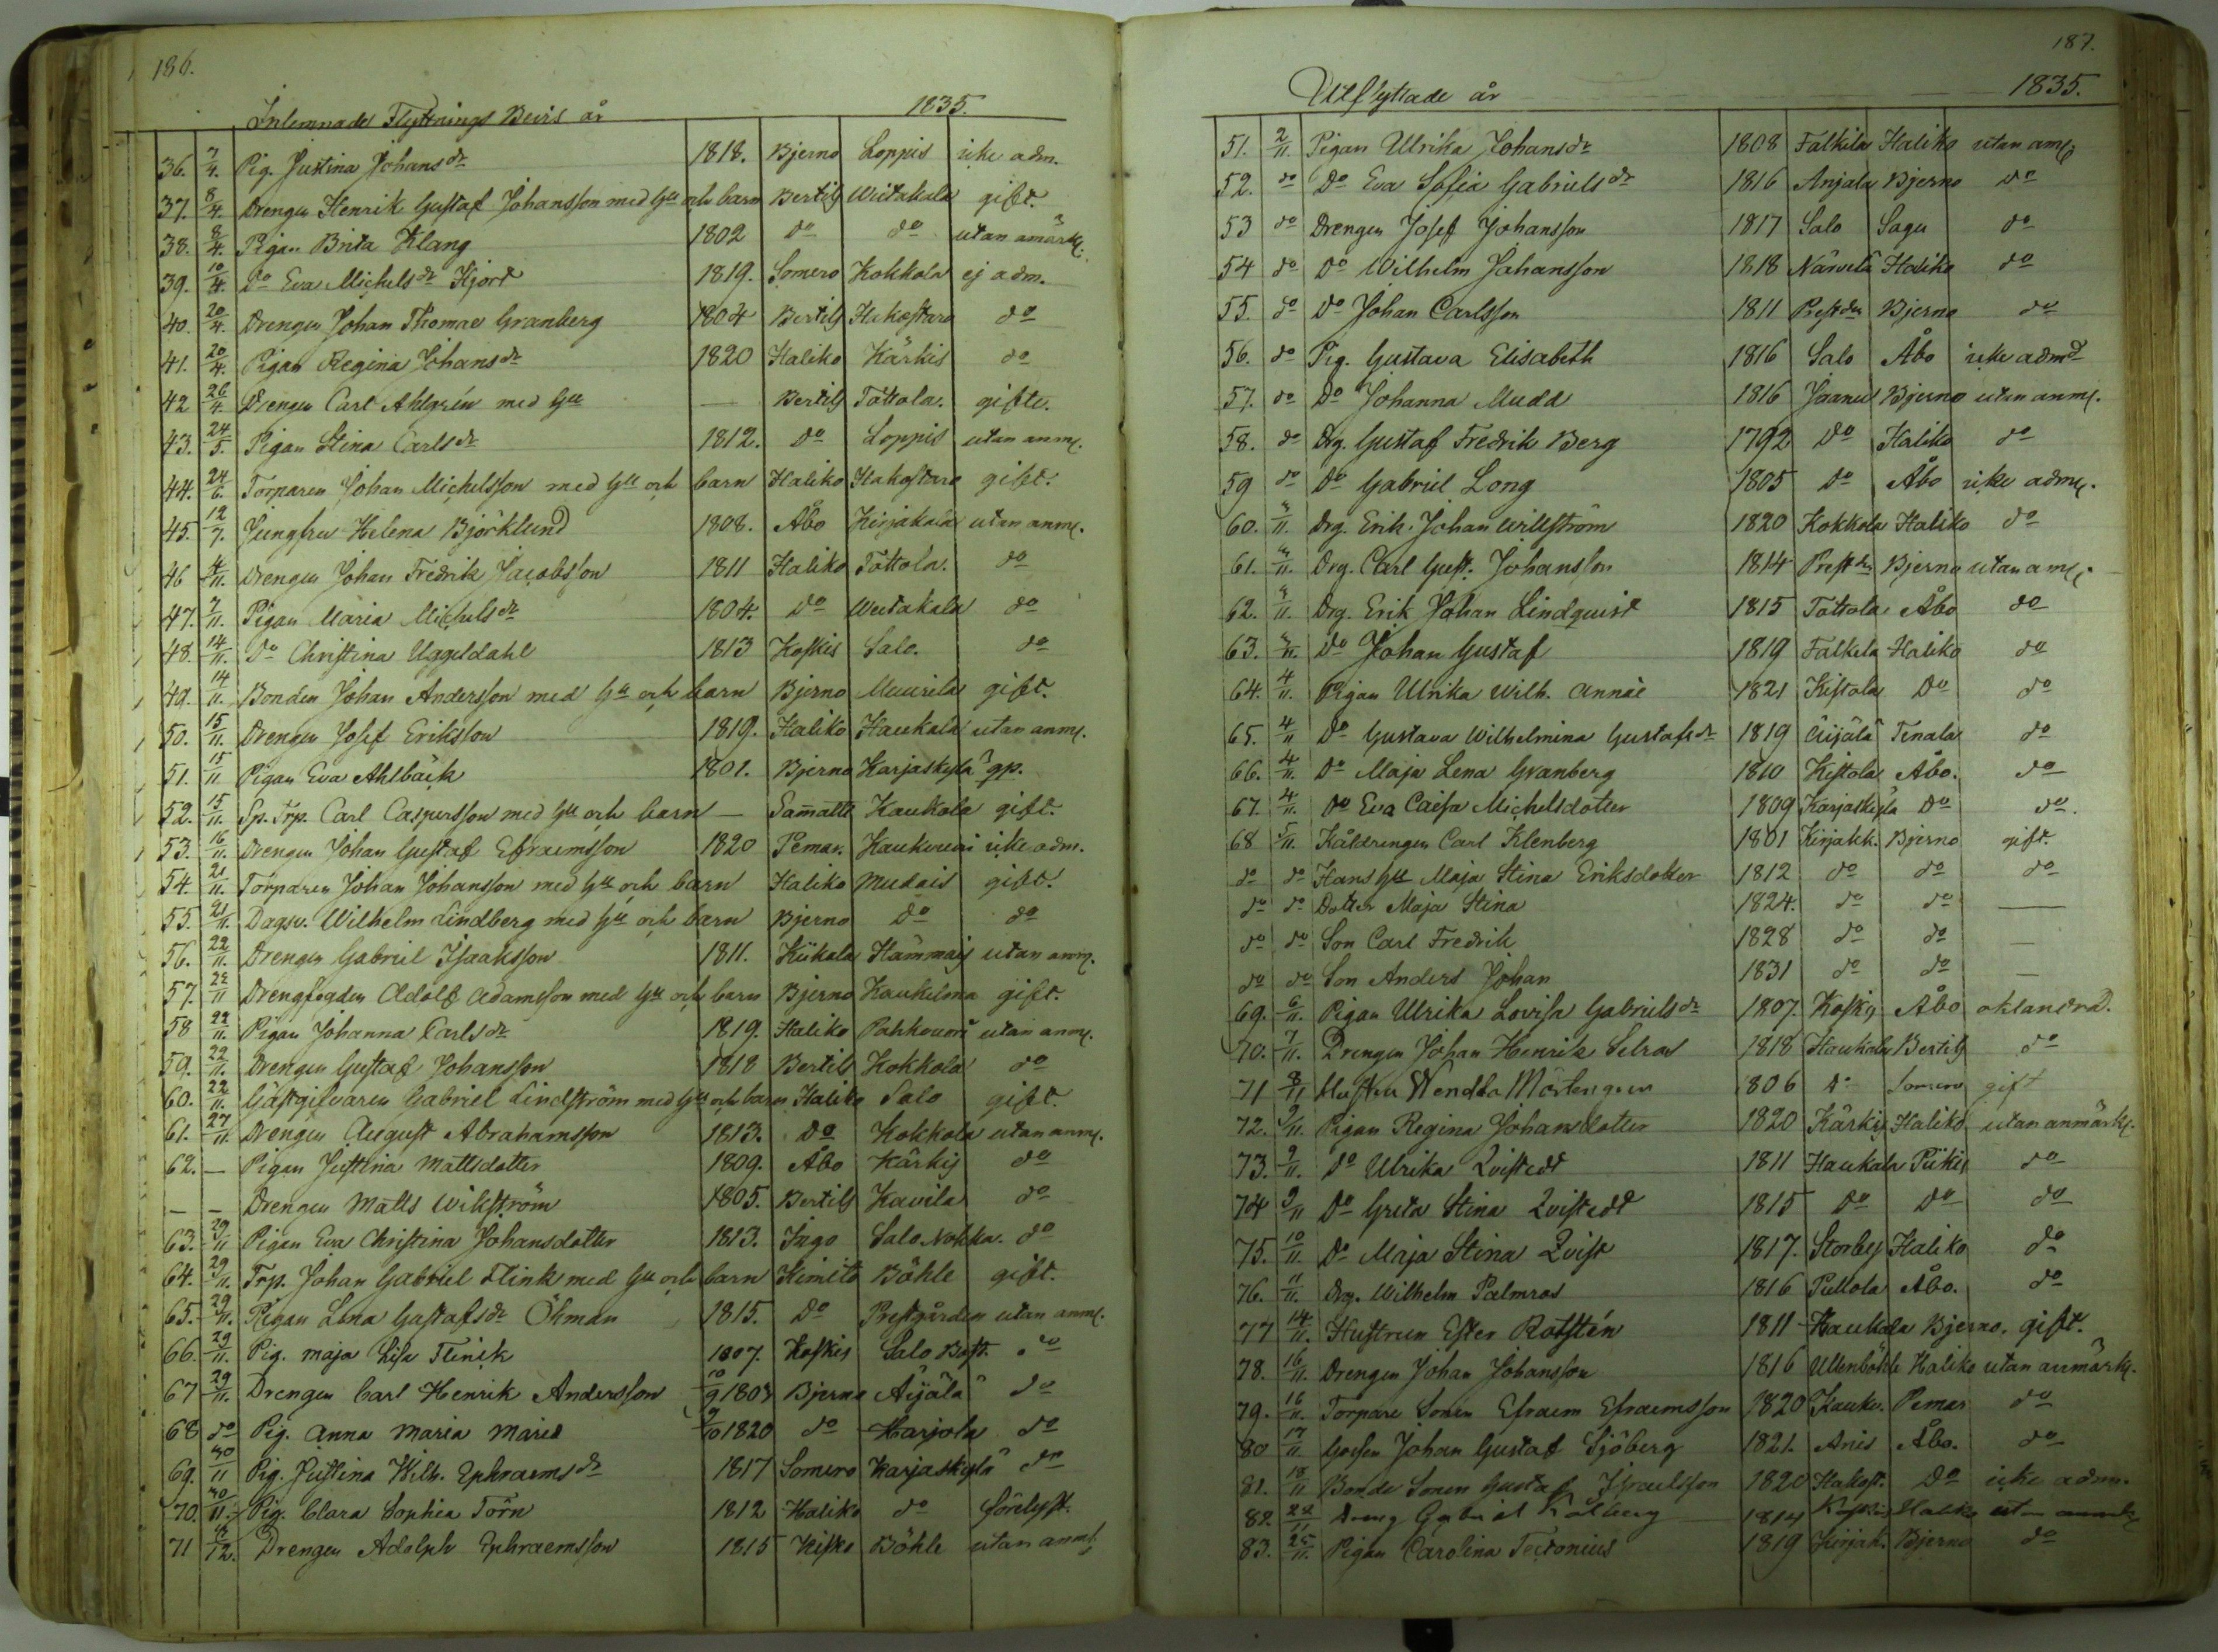 186.
Inlemnade Flyttnings Bevis år 1835.
36. 7/4. Pig. Justina Johansdr 1818. Bjerno Loppis icke adm.
37. 8/4. Drengen Henrik Gustaf Johansson med Hu och barn Bertils Weitakala gift.
38. 8/4. Pigan Brita Klang 1802 do do utan anmärk.
39. 10/4. Do Eva Michelsdr Hjort 1819. Somero Kokkola ej adm.
40. 20/4. Drengen Johan Thomae Granberg 1804 Bertils Hakostaro do
41. 20/4. Pigan Regina Johansdr 1820 Haliko Kärkis do
42 26/4. Drengen Carl Ahlgrén med Hu — Bertils Tottola. gifte.
43. 24/5. Pigan Stina Carlsdr 1812. Do Loppis utan anm.
44. 24/6. Torparen Johan Michelsson med Hu och barn Haliko Hakostaro gift.
45. 12/7. Jungfru Helena Björklund 1808. Åbo Kirjakala utan anm.
46 4/11. Drengen Johan Fredrik Jacobsson 1811 Haliko Tottola. do
47. 7/11. Pigan Maria Michelsdr 1804. Do Weitakala do
48. 14/11. Do Christina Uggeldahl 1813 Koskis Salo. do
49. 14/11. Bonden Johan Andersson med Hu och barn Bjerno Muurila gift.
50. 15/11. Drengen Josef Eriksson 1819. Haliko Haukala utan anm.
51. 15/11. Pigan Eva Ahlbäck 1801. Bjerno Karjaskylä gp.
52. 15/11. Sp. Trp. Carl Caspersson med Hu och barn — Sammatti Kaukola gift.
53. 16/11. Drengen Johan Gustaf Efraemsson 1820 Pemar. icke adm.
54. 21/11. Torparen Johan Johansson med Hu och barn Haliko Mudais gift.
55. 21/11. Dagsv. Wilhelm Lindberg med Hu och barn Bjerno Do do
56. 22/11. Drengen Gabriel Isaaksson 1811. Kiikala Hämmais utan anm.
57. 22/11 Drengfogden Adolf Adamsson med Hu och barn Bjerno Kaukelma gift.
58 22/11. Pigan Johanna Carlsdr 1819. Haliko Pahkavuori utan anm.
59. 22/11. Drengen Gustaf Johansson 1818 Bertils Kokkola do
60. 22/11. Gästgifvaren Gabriel Lindström med Hu och barn Haliko Salo gift.
61. 27/11. Drengen August Abrahamsson 1813. Do Kokkola utan anm.
62. — Pigan Justina Mattsdotter 1809. Åbo Kärkis do
— — Drengen Matts Wikström 1805. Bertils Kavila do
63. 29/11 Pigan Eva Christina Johansdotter 1813. Ingo Salo Nokka. do
64. 29/11. Trp. Johan Gabriel Flink med Hu och barn Kimito Böhle gift.
65. 29/11. Pigan Lena Gustafsdr Öhman 1815. Do Prestgården utan anm.
66. 29/11. Pig. Maja Lisa Flinck 1807. Koskis Salo Bost. do
67 29/11. Drengen Carl Henrik Andersson 10/9 1803 Bjerno Äijälä do
68 do Pig. Anna Maria Maris 1820 do Harjola do
69. 30/11 Pig. Justina Wilh. Ephraemsdr 1817 Somero Karjaskylä do
70. 30/11. Pig. Clara Sophia Törn 1812 Haliko do
71 /12. Drengen Adolph Ephraemsson 1815 Kisko Böhle utan anm.
187.
Utflyttade år 1835.
51. 2/11. Pigan Ulrika Johansdr 1808 Falkila Haliko utan anm.
52. do Do Eva Sofia Gabrielsdr 1816 Anjala Bjerno do
53 do Drengen Josef Johansson 1817 Salo Sagu do
54 do Do Wilhelm Johansson 1818 Närvelä Haliko do
55. do Do Johan Carlsson 1811 Prestdn Bjerno do
56. do Pig. Gustava Elisabeth 1816 Salo Åbo icke admd
57. do Do Johanna Mudd 1816 Jaanus Bjerno utan anm.
58. do Drg. Gustaf Fredrik Berg 1792 Do Haliko do
59 do Do Gabriel Long 1805 Do Åbo icke adm.
60. 3/11. Drg. Erik Johan Willström 1820 Kokkola Haliko do
61. 3/11. Drg. Carl Gust. Johansson 1814 Prestdn Bjerno utan anm.
62. 3/11. Drg. Erik Johan Lindquist 1815 Tottola Åbo do
63. 3/11. Do Johan Gustaf 1819 Falkila Haliko do
64. 4/11. Pigan Ulrika Wilh. Annae 1821 Kistola Do do
65. 4/11 Do Gustava Wilhelmina Gustafsdr 1819 Äijälä Tenala do
66. 4/11. Do Maja Lena Granberg 1810 Kistola Åbo. do
67. 4/11. Do Eva Caisa Michelsdotter 1809 Karjaskylä Do do.
68 5/11. Kåldrengen Carl Klenberg 1801 Kirjakk. Bjerno gift.
do do Hans Hu Maja Stina Eriksdotter 1812 do do do
do do Dotter Maja Stina 1824. do do —
do do Son Carl Fredrik 1828 do do —
do do Son Anders Johan 1831 do do —
69. 6/11. Pigan Ulrika Lovisa Gabrielsdr 1807. Koskis Åbo oklandrad.
70. 7/11. Drengen Johan Henrik Selros 1818 Haukala Bertils do
71 8/11 Hustru Wendla Mörtengren 806 Do Somero gift
72. 9/11. Pigan Regina Johansdotter 1820 Kärkis Haliko utan anmärk.
73. 9/11. Do Ulrika Qvistedt 1811 Haukala Piikis do
74 9/11 Do Greta Stina Qvistedt 1815 Do Do do
75. 10/11. Do Maja Stina Qvist 1817. Storby Haliko do
76. 11/11. Drg. Wilhelm Palmros 1816 Pullola Åbo. do
77 14/11. Hustrun Ester Rotstén 1811 Haukala Bjerno. gift.
78. 16/11. Drengen Johan Johansson 1816 Ullenböhle Haliko utan anmärk.
79. 16/11. Torpare Sonen Efraem Efraemsson 1820 Kauku. Pemar do
80 17/11 Gossen Johan Gustaf Sjöberg 1821. Anis Åbo. do
81. 18/11 Bonde Sonen Gustaf Israelsson 1820 Hakost. Do icke adm.
82. 24/11 Dreng Gabriel Kålberg 1814 Koskis Haliko utan anmk
83. 25/11. Pigan Carolina Tectonius 1819 Kirjak. Bjerno do